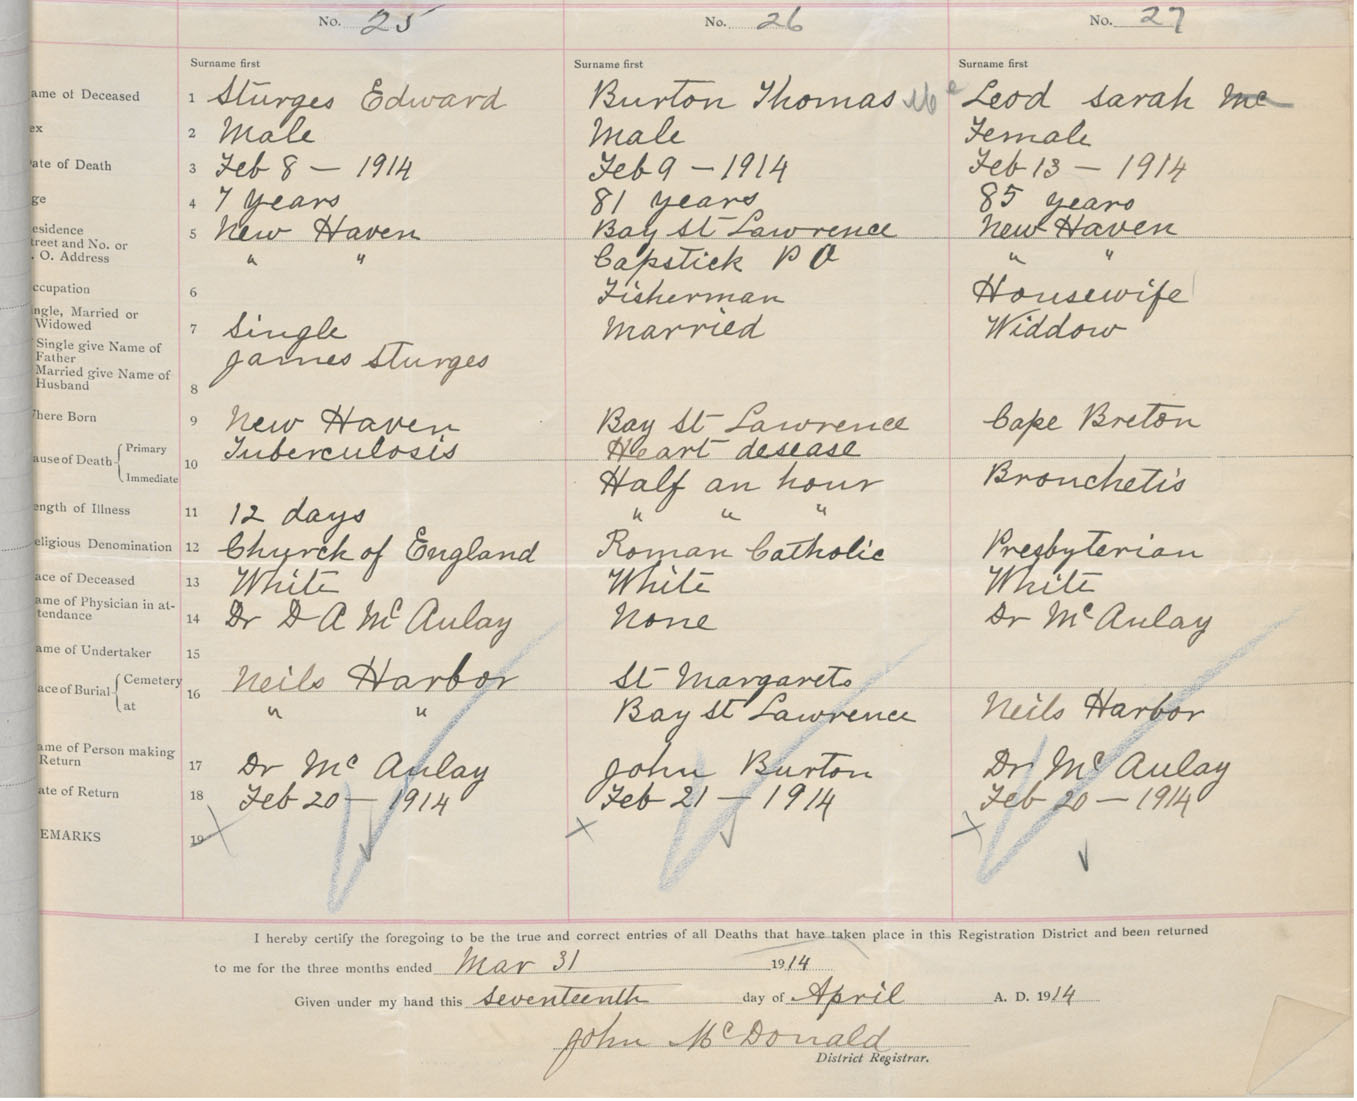 No. 25 No. 26 No. 27
Surname first Surname first Surname first
ame of Deceased 1 Sturges Edward Burton Thomas Mc Leod Sarah Mc
ex 2 Male Male Female
ate of Death 3 Feb 8 — 1914 Feb 9 — 1914 Feb 13 — 1914
ge 4 7 years 81 years 85 years
esidence 5 New Haven Bay St Lawrence New Haven
treet and No. or
. O. Address " " Capstick P O " "
ccupation 6 Fisherman Housewife
ingle, Married or
Widowed 7 Single Married Widdow
Single give Name of
Father James Sturges
Married give Name of
Husband 8
here Born 9 New Haven Bay St Lawrence Cape Breton
ause of Death Primary 10 Tuberculosis Heart desease
Immediate Half an hour Bronchetis
ength of Illness 11 12 days " " "
eligious Denomination 12 Church of England Roman Catholic Presbyterian
ace of Deceased 13 White White White
ame of Physician in at-
tendance 14 Dr D A McAulay None Dr McAulay
ame of Undertaker 15
ace of Burial Cemetery 16 Neils Harbor St Margarets
at " " Bay St Lawrence Neils Harbor
ame of Person making
Return 17 Dr McAulay John Burton Dr McAulay
ate of Return 18 Feb 20 — 1914 Feb 21 — 1914 Feb 20 — 1914
EMARKS 19
I hereby certify the foregoing to be the true and correct entries of all Deaths that have taken place in this Registration District and been returned
to me for the three months ended Mar 31 1914
Given under my hand this seventeenth day of April A. D. 1914
John McDonald
District Registrar.